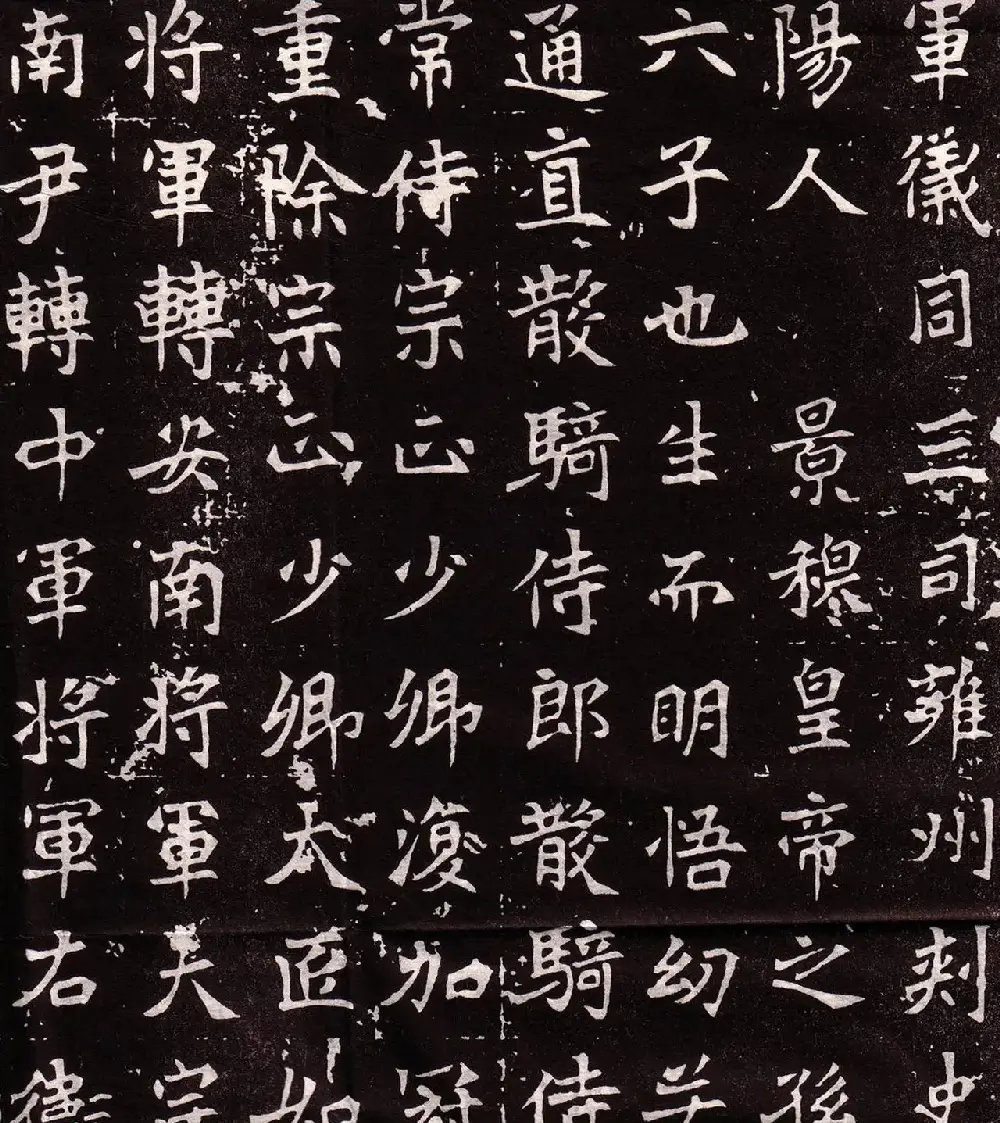 軍儀同三司雍州刾史
陽人景穆皇帝之孫
六子也生而明悟幼
通直散騎侍郎散騎侍
常侍宗正少卿復加冠
重除宗正少卿太匠
將軍轉安南將軍大宗
南尹轉中軍將軍右衛